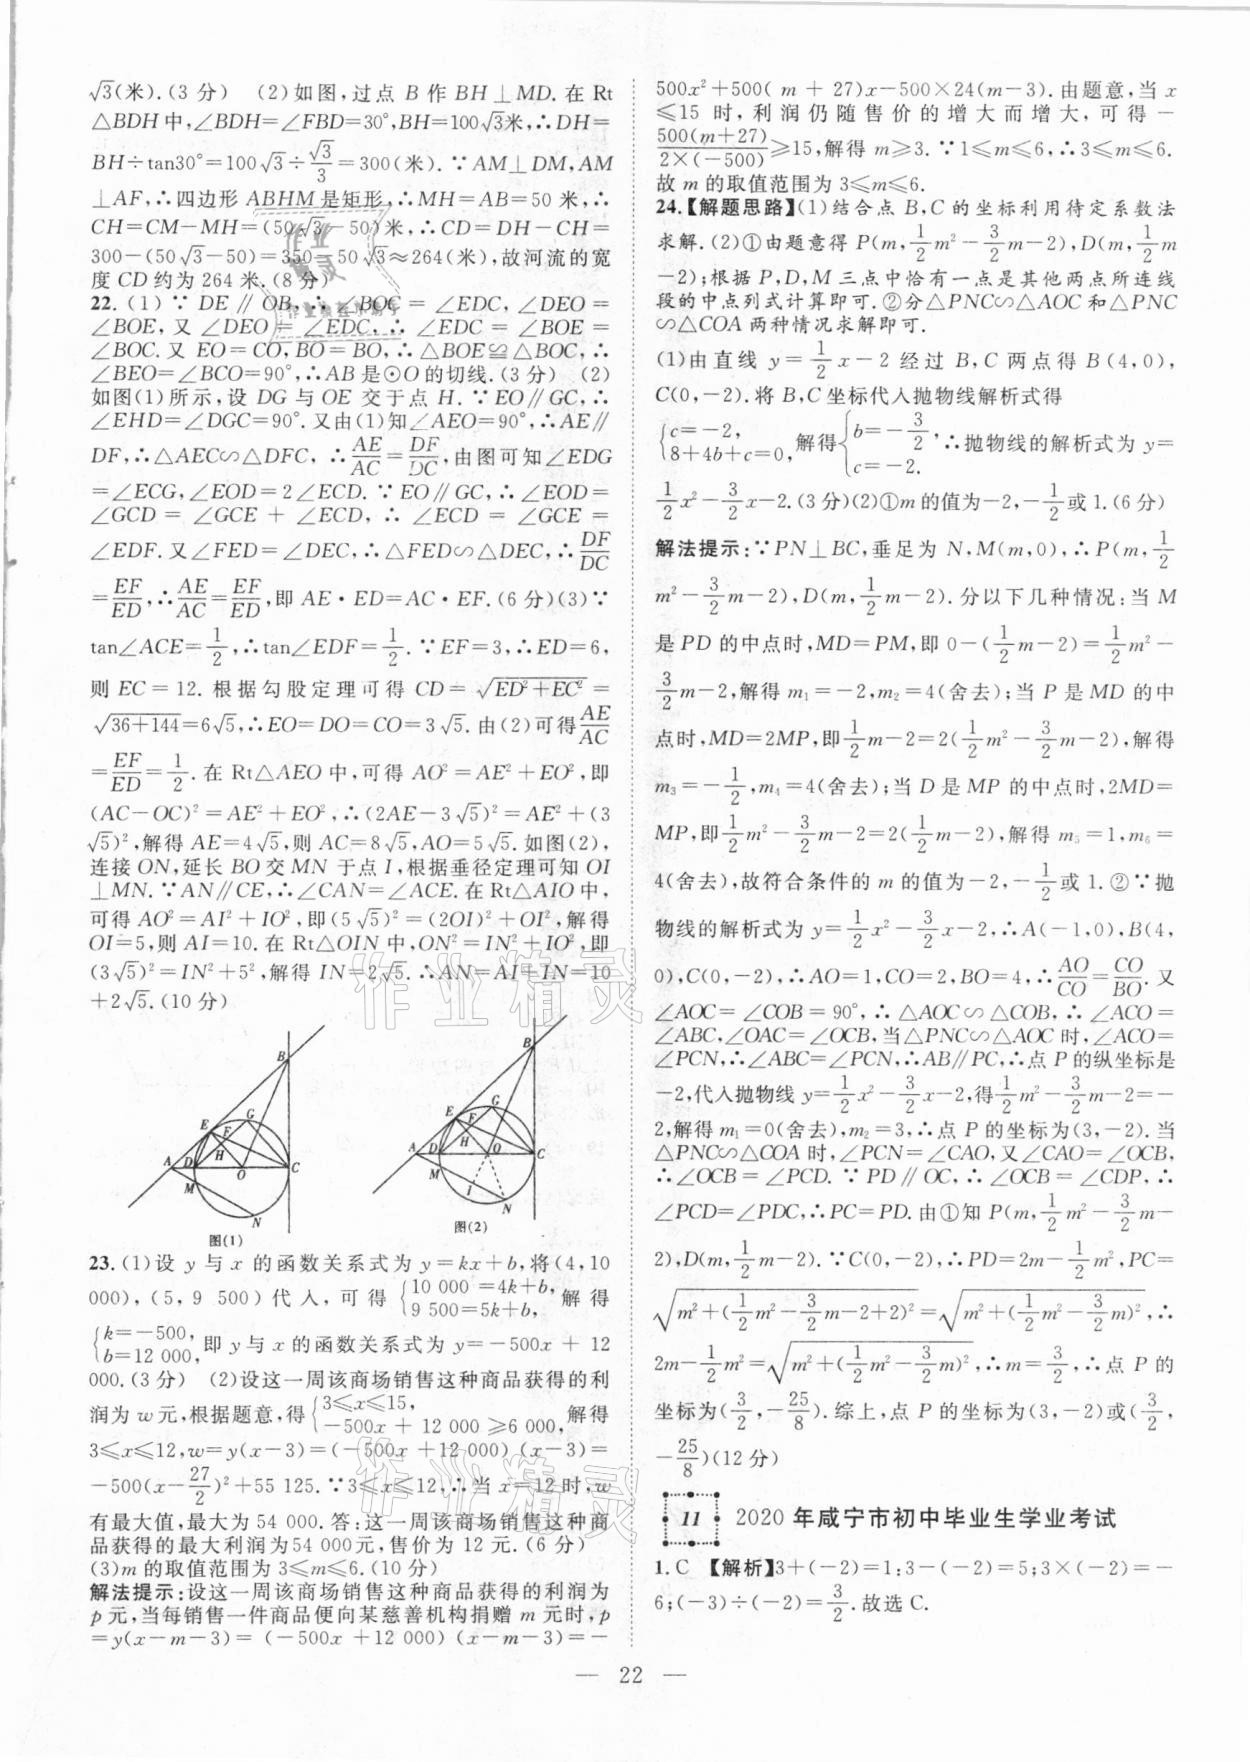 √3(米).(3 分)　(2)如图,过点 B 作 BH⊥MD.在 Rt
△BDH 中,∠BDH=∠FBD=30°,BH=100√3米,∴DH=
BH÷tan30°=100√3÷√3/3=300(米).∵AM⊥DM,AM
⊥AF,∴四边形 ABHM 是矩形,∴MH=AB=50 米,∴
CH=CM-MH=(50√3-50)米,∴CD=DH-CH=
300-(50√3-50)=350-50√3≈264(米),故河流的宽
度 CD 约为 264 米.(8 分)
22.(1)∵DE∥OB,∴∠BOC=∠EDC,∠DEO=
∠BOE,又∠DEO=∠EDC,∴∠EDC=∠BOE=
∠BOC.又 EO=CO,BO=BO,∴△BOE≌△BOC,∴
∠BEO=∠BCO=90°,∴AB 是⊙O 的切线.(3 分)　(2)
如图(1)所示,设 DG 与 OE 交于点 H.∵EO∥GC,∴
∠EHD=∠DGC=90°.又由(1)知∠AEO=90°,∴AE∥
DF,∴△AEC∽△DFC,∴AE/AC=DF/DC,由图可知∠EDG
=∠ECG,∠EOD=2∠ECD.∵EO∥GC,∴∠EOD=
∠GCD=∠GCE+∠ECD,∴∠ECD=∠GCE=
∠EDF.又∠FED=∠DEC,∴△FED∽△DEC,∴DF/DC
=EF/ED,∴AE/AC=EF/ED,即 AE·ED=AC·EF.(6 分)(3)∵
tan∠ACE=1/2,∴tan∠EDF=1/2.∵EF=3,∴ED=6,
则 EC=12.根据勾股定理可得 CD=√(ED²+EC²)=
√(36+144)=6√5,∴EO=DO=CO=3√5.由(2)可得AE/AC
=EF/ED=1/2.在 Rt△AEO 中,可得 AO²=AE²+EO²,即
(AC-OC)²=AE²+EO²,∴(2AE-3√5)²=AE²+(3
√5)²,解得 AE=4√5,则 AC=8√5,AO=5√5.如图(2),
连接 ON,延长 BO 交 MN 于点 I,根据垂径定理可知 OI
⊥MN.∵AN∥CE,∴∠CAN=∠ACE.在 Rt△AIO 中,
可得 AO²=AI²+IO²,即(5√5)²=(2OI)²+OI²,解得
OI=5,则 AI=10.在 Rt△OIN 中,ON²=IN²+IO²,即
(3√5)²=IN²+5²,解得 IN=2√5.∴AN=AI+IN=10
+2√5.(10 分)
B
E F G
A D H
O C
M
N
图(1)
B
E F G
A D H
O C
M
I
N
图(2)
23.(1)设 y 与 x 的函数关系式为 y=kx+b,将(4,10
000),(5,9 500)代入,可得{10 000=4k+b, 9 500=5k+b,解得
{k=-500, b=12 000,即 y 与 x 的函数关系式为 y=-500x+12
000.(3 分)　(2)设这一周该商场销售这种商品获得的利
润为 w 元,根据题意,得{3≤x≤15, -500x+12 000≥6 000,解得
3≤x≤12,w=y(x-3)=(-500x+12 000)(x-3)=
-500(x-27/2)²+55 125.∵3≤x≤12,∴当 x=12 时,w
有最大值,最大为 54 000.答:这一周该商场销售这种商
品获得的最大利润为54 000元,售价为 12 元.(6 分)
(3)m 的取值范围为 3≤m≤6.(10 分)
解法提示:设这一周该商场销售这种商品获得的利润为
p 元,当每销售一件商品便向某慈善机构捐赠 m 元时,p
=y(x-m-3)=(-500x+12 000)(x-m-3)=-
500x²+500(m+27)x-500×24(m-3).由题意,当 x
≤15 时,利润仍随售价的增大而增大,可得-
500(m+27)/2×(-500)≥15,解得 m≥3.∵1≤m≤6,∴3≤m≤6.
故 m 的取值范围为 3≤m≤6.
24.【解题思路】(1)结合点 B,C 的坐标利用待定系数法
求解.(2)①由题意得 P(m,1/2m²-3/2m-2),D(m,1/2m
-2);根据 P,D,M 三点中恰有一点是其他两点所连线
段的中点列式计算即可.②分△PNC∽△AOC 和△PNC
∽△COA 两种情况求解即可.
(1)由直线 y=1/2x-2 经过 B,C 两点得 B(4,0),
C(0,-2).将 B,C 坐标代入抛物线解析式得
{c=-2, 8+4b+c=0,解得{b=-3/2, c=-2.∴抛物线的解析式为 y=
1/2x²-3/2x-2.(3 分)(2)①m 的值为-2,-1/2或 1.(6 分)
解法提示:∵PN⊥BC,垂足为 N,M(m,0),∴P(m,1/2
m²-3/2m-2),D(m,1/2m-2).分以下几种情况:当 M
是 PD 的中点时,MD=PM,即 0-(1/2m-2)=1/2m²-
3/2m-2,解得 m₁=-2,m₂=4(舍去);当 P 是 MD 的中
点时,MD=2MP,即1/2m-2=2(1/2m²-3/2m-2),解得
m₃=-1/2,m₄=4(舍去);当 D 是 MP 的中点时,2MD=
MP,即1/2m²-3/2m-2=2(1/2m-2),解得 m₅=1,m₆=
4(舍去),故符合条件的 m 的值为-2,-1/2或 1.②∵抛
物线的解析式为 y=1/2x²-3/2x-2,∴A(-1,0),B(4,
0),C(0,-2),∴AO=1,CO=2,BO=4,∴AO/CO=CO/BO.又
∠AOC=∠COB=90°,∴△AOC∽△COB,∴∠ACO=
∠ABC,∠OAC=∠OCB,当△PNC∽△AOC 时,∠ACO=
∠PCN,∴∠ABC=∠PCN,∴AB∥PC,∴点 P 的纵坐标是
-2,代入抛物线 y=1/2x²-3/2x-2,得1/2m²-3/2m-2=-
2,解得 m₁=0(舍去),m₂=3,∴点 P 的坐标为(3,-2).当
△PNC∽△COA 时,∠PCN=∠CAO,又∠CAO=∠OCB,
∴∠OCB=∠PCD.∵PD∥OC,∴∠OCB=∠CDP,∴
∠PCD=∠PDC,∴PC=PD.由①知 P(m,1/2m²-3/2m-
2),D(m,1/2m-2).∵C(0,-2),∴PD=2m-1/2m²,PC=
√(m²+(1/2m²-3/2m-2+2)²)=√(m²+(1/2m²-3/2m)²),∴
2m-1/2m²=√(m²+(1/2m²-3/2m)²),∴m=3/2,∴点 P 的
坐标为(3/2,-25/8).综上,点 P 的坐标为(3,-2)或(3/2,
-25/8)(12 分)
11　2020 年咸宁市初中毕业生学业考试
1.C　【解析】3+(-2)=1;3-(-2)=5;3×(-2)=-
6;(-3)÷(-2)=3/2.故选 C.
— 22 —
作业精灵
作业精灵
作业精灵